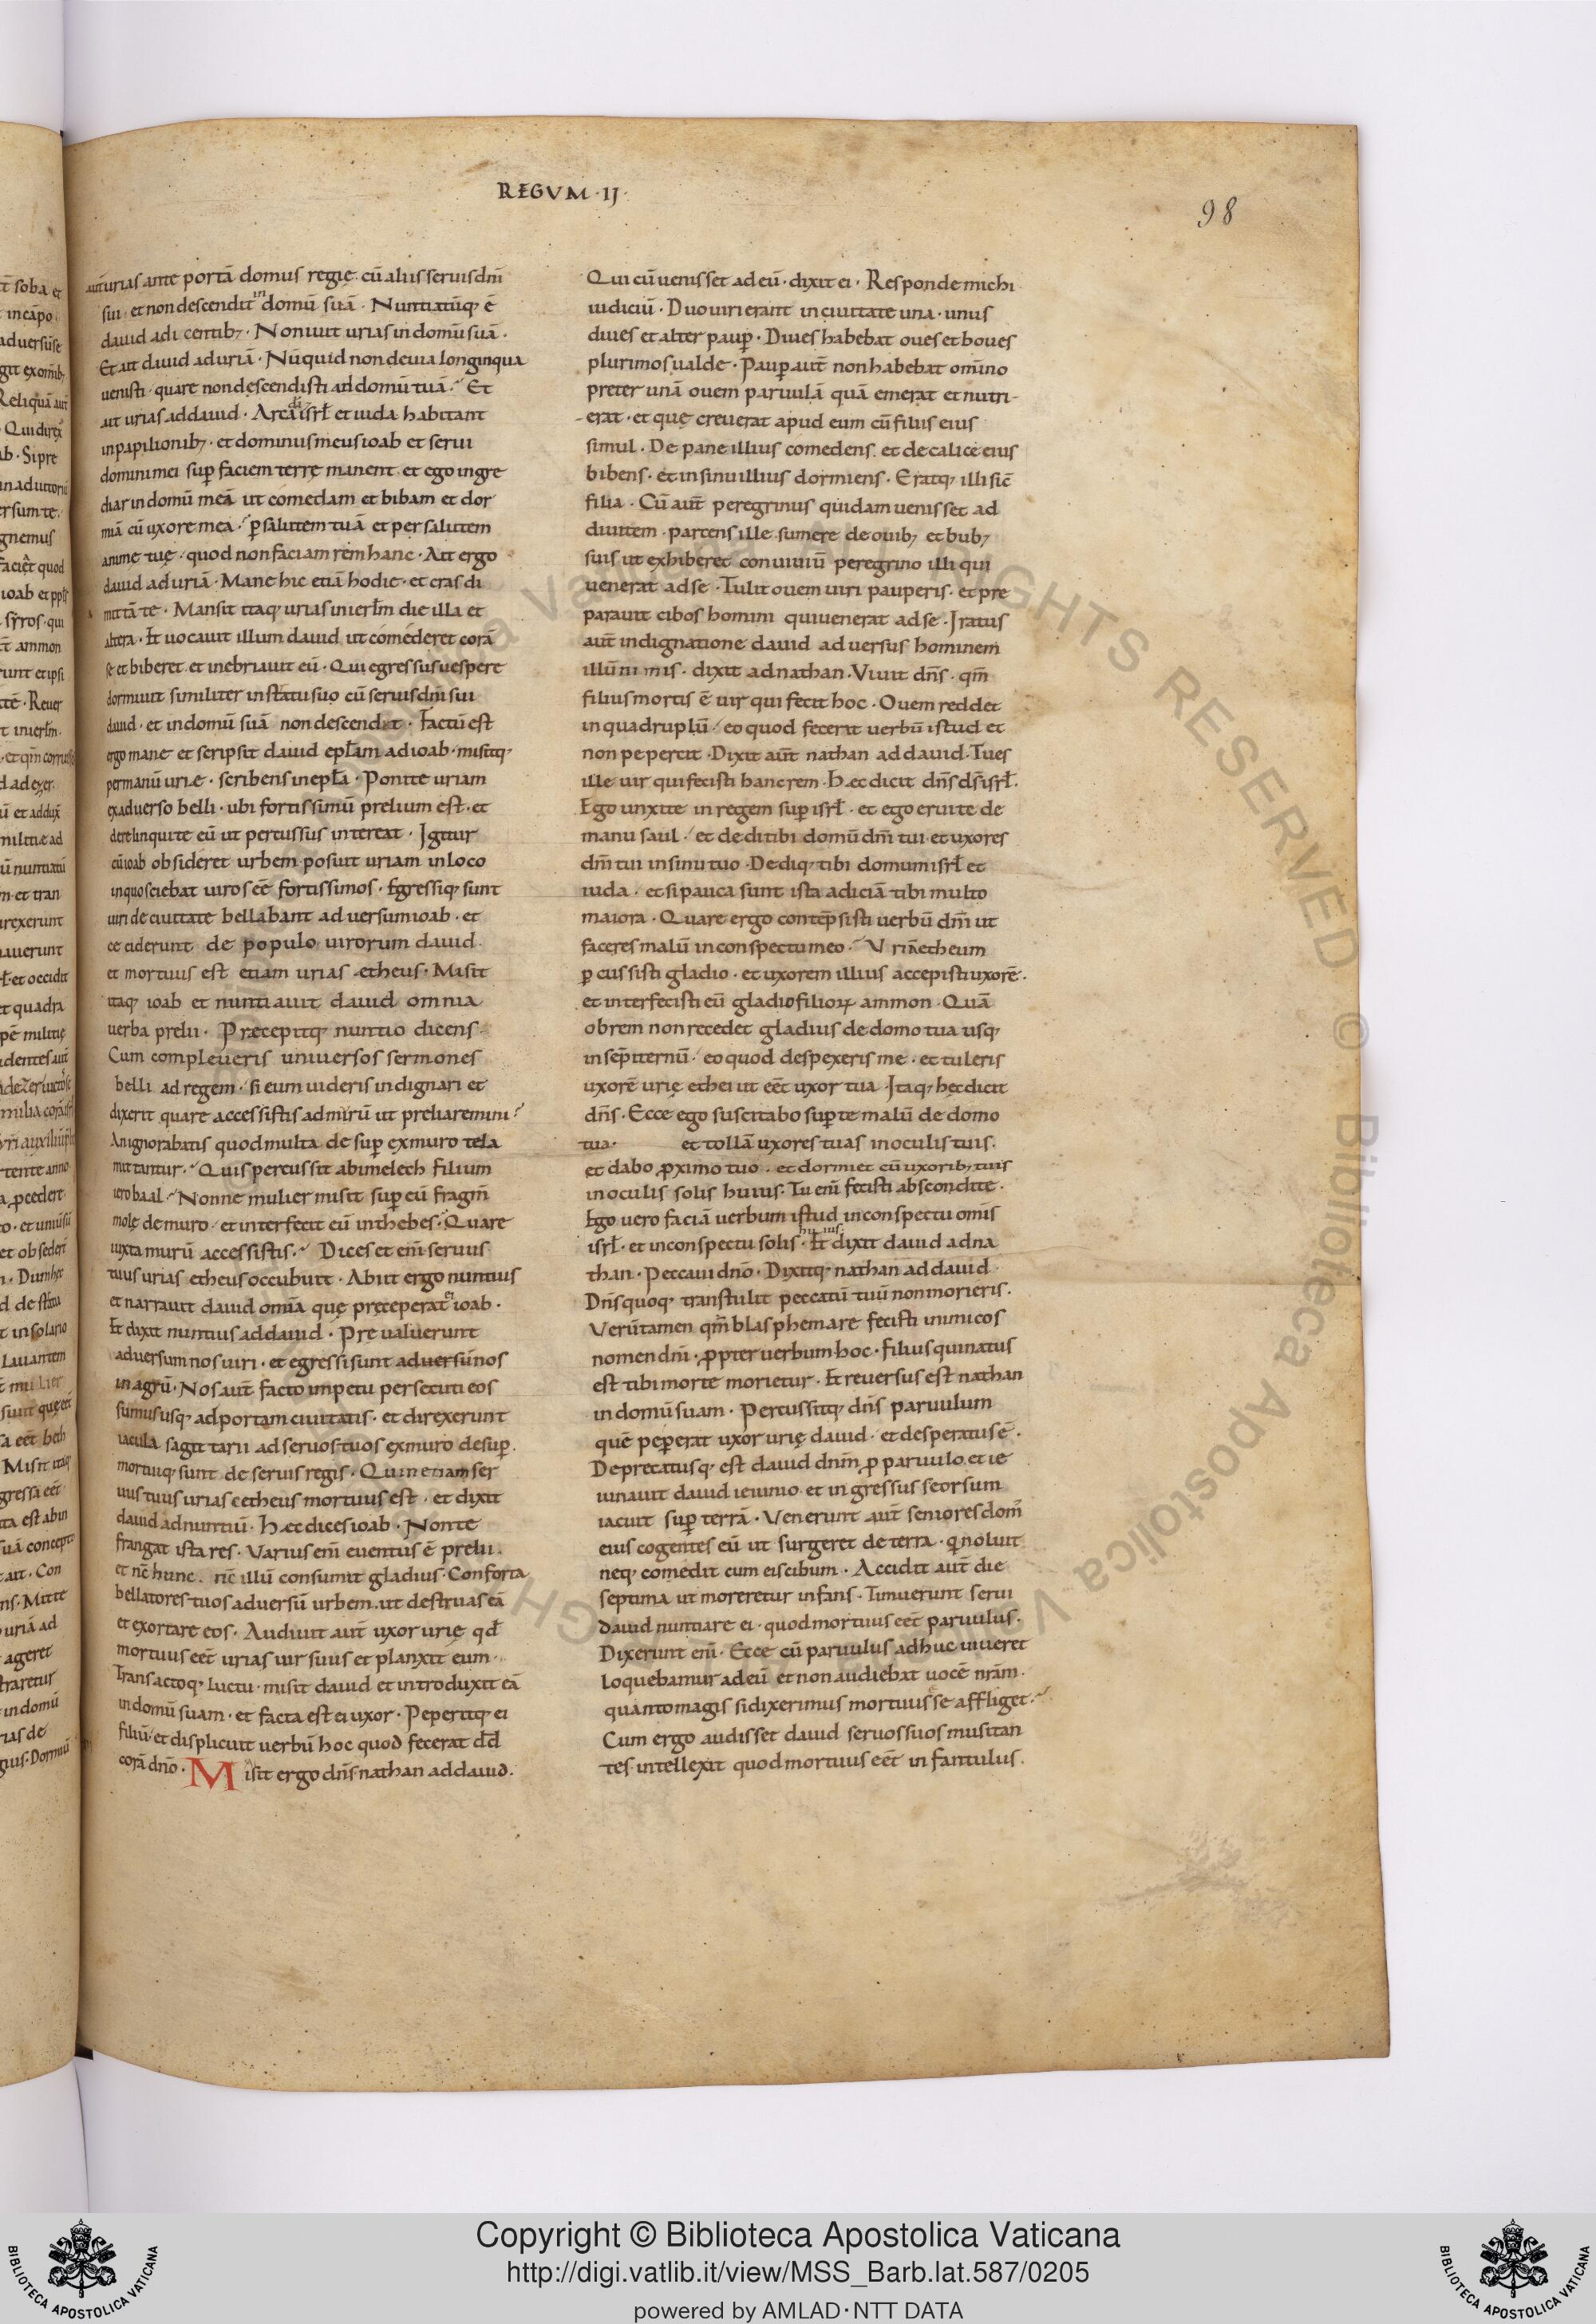 REGVM · IJ ·
98
aut̄ urias ante portā domus regię. cū aliis seruis dn̄i
sui · et non descendit in domū suā · Nuntiatūq; ē
dauid a dicentib; · Non iuit urias in domū suā ·
Et ait dauid ad uriā · Nūquid non de uia longinqua
uenisti · quare non descendisti ad domū tuā? Et
ait urias ad dauid · Arca dī isrł et iuda habitant
in papilionib; · et dominus meus ioab et serui
domini mei sup̱ faciem terrę manent · et ego ingre
diar in domū meā ut comedam et bibam et dor
miā cū uxore mea? p̱ salutem tuā et per salutem
anime tuę · quod non faciam rem hanc · Ait ergo
dauid ad uriā · Mane hic etiā hodie · et cras di
mittā te · Mansit itaq; urias in ierłm die illa et
altera · Et uocauit illum dauid ut coméderet corā
se et biberet et inebriauit eū · Qui egressus uespere
dormiuit similiter in stratu suo cū seruis dn̄i sui
dauid · et in domū suā non descendit · Factū est
ergo mane et scripsit dauid epłam ad ioab · misitq;
per manū urię · scribens in epła · Ponite uriam
ex aduerso belli · ubi fortissimū prelium est · et
derelinquite eū ut percussus intereat · Igitur
cū ioab obsideret urbem posuit uriam in loco
in quo sciebat uiros eē fortissimos · Egressiq; sunt
uiri de ciuitate bellabant aduersum ioab · et
ceciderunt de populo uirorum dauid ·
et mortuus est etiam urias etheus · Misit
itaq; ioab et nuntiauit dauid omnia
uerba prelii · Præcepitq; nuntio dicens ·
Cum compleueris uniuersos sermones
belli ad regem · si eum uideris indignari et
dixerit quare accessistis ad murū ut preliaremini?
An ignorabatis quod multa desup̱ ex muro tela
mittantur? Quis percussit abimelech filium
ierobaal? Nonne mulier misit sup̱ eū fragm̄
molę de muro · et interfecit eū in thebes? Quare
iuxta murū accessistis? Dices et em̄ seruus
tuus urias etheus occubuit · Abiit ergo nuntius
et narrauit dauid omīa quę preceperat ei ioab ·
Et dixit nuntius ad dauid · Preualuerunt
aduersum nos uiri · et egressi sunt aduersū nos
in agrū · Nos aut̄ facto impetu persecuti eos
sumus usq; ad portam ciuitatis · et direxerunt
iacula sagittarii ad seruos tuos ex muro desup̱ ·
mortuiq; sunt de seruis regis · Quin etiam ser
uus tuus urias etheus mortuus est · et dixit
dauid ad nuntiū · Hæc dices ioab · Non te
frangat ista res · Varius em̄ euentus ē prelii ·
et nc̄ hunc · nc̄ illū consumit gladius · Conforta
bellatores tuos aduersū urbem ut destruas eā
et exortare eos · Audiuit aut̄ uxor urię qđ
mortuus eēt urias uir suus et planxit eum ·
Transactoq; luctu · misit dauid et introduxit eā
in domū suam · et facta est ei uxor · Peperitq; ei
filiū · et displicuit uerbū hoc quod fecerat dd̄
corā dn̄o · Misit ergo dn̄s nathan ad dauid ·
Qui cū uenisset ad eū · dixit ei · Responde michi
iudiciū · Duo uiri erant in ciuitate una · unus
diues et alter paup̱ · Diues habebat oues et boues
plurimos ualde · Paup̱ aut̄ non habebat omīno
preter unā ouem paruulā quā emerat et nutri-
-erat · et quę creuerat apud eum cū filiis eius
simul · De pane illius comedens · et de calice eius
bibens · et in sinu illius dormiens · Eratq; illi sic̄
filia · Cū aut̄ peregrinus quidam uenisset ad
diuitem · parcens ille sumere de ouib; et bub;
suis ut exhiberet conuiuiū peregrino illi qui
uenerat ad se · Tulit ouem uiri pauperis · et pre
parauit cibos homini qui uenerat ad se · Iratus
aut̄ indignatione dauid aduersus hominem
illū nimis · dixit ad nathan · Viuit dn̄s · qm̄
filius mortis ē uir qui fecit hoc · Ouem reddet
in quadruplū · eo quod fecerit uerbū istud et
non pepercit · Dixit aut̄ nathan ad dauid · Tu es
ille uir qui fecisti hanc rem · Hæc dicit dn̄s ds̄ isrł ·
Ego unxi te in regem sup̱ isrł · et ego erui te de
manu saul · et dedi tibi domū dn̄i tui · et uxores
dn̄i tui in sinu tuo · Dediq; tibi domum isrł et
iuda · et si pauca sunt ista adiciā tibi multo
maiora · Quare ergo contēpsisti uerbū dn̄i ut
faceres malū in conspectu meo? Vriā etheum
p̱cussisti gladio · et uxorem illius accepisti uxorē ·
et interfecisti eū gladio filioꝝ ammon · Quā
obrem non recedet gladius de domo tua usq;
in sēpiternū · eo quod despexeris me · et tuleris
uxorē urię ethei ut eēt uxor tua · Itaq; hęc dicit
dn̄s · Ecce ego suscitabo sup̱ te malū de domo
tua · et tollā uxores tuas in oculis tuis ·
et dabo ꝓximo tuo · et dormiet cū uxorib; tuis
in oculis solis huius · Tu em̄ fecisti abscondite ·
Ego uero faciā uerbum istud in conspectu omīs
isrł · et in conspectu solis huius · Et dixit dauid ad na
than · Peccaui dn̄o · Dixitq; nathan ad dauid ·
Dn̄s quoq; transtulit peccatū tuū non morieris ·
Verūtamen qm̄ blasphemare fecisti inimicos
nomen dn̄i · ꝓpter uerbum hoc · filius qui natus
est tibi morte morietur · Et reuersus est nathan
in domū suam · Percussitq; dn̄s paruulum
quē pep̱erat uxor urię dauid · et desperatus ē ·
Deprecatusq; est dauid dn̄m ꝓ paruulo et ie
iunauit dauid ieiunio · et ingressus seorsum
iacuit sup̱ terrā · Venerunt aut̄ seniores dom̄
eius cogentes eū ut surgeret de terra · qi noluit
neq; comedit cum eis cibum · Accidit aut̄ die
septima ut moreretur infans · Timuerunt serui
dauid nuntiare ei · quod mortuus eēt paruulus ·
Dixerunt em̄ · Ecce cū paruulus adhuc uiueret
loquebamur ad eū et non audiebat uocē nr̄am ·
quanto magis si dixerimus mortuus ē se affliget?
Cum ergo audisset dauid seruos suos musitan
tes · intellexit quod mortuus eēt infantulus ·
Copyright © Biblioteca Apostolica Vaticana
http://digi.vatlib.it/view/MSS_Barb.lat.587/0205
powered by AMLAD·NTT DATA